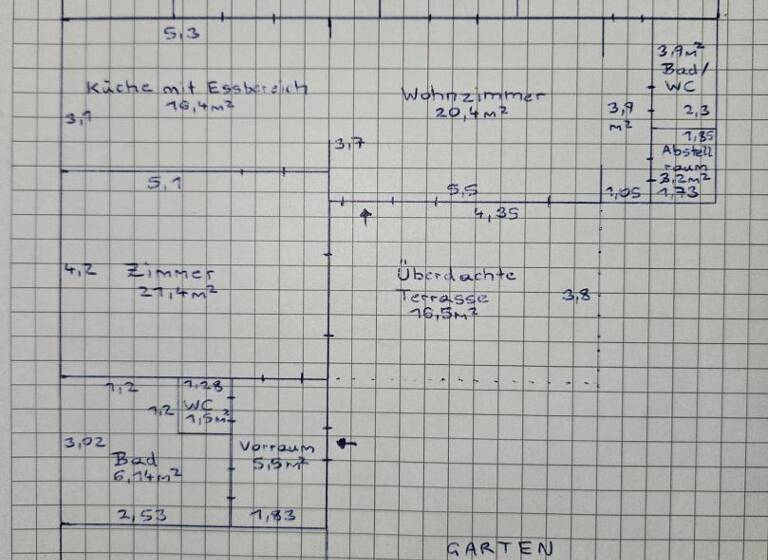 5,3
Küche mit Essbereich
16,4m²
3,1
Wohnzimmer
20,4m²
3,9
m²
3,9m²
Bad/
WC
2,3
1,85
Abstell
raum
3,2m²
1,73
1,05
3,7
5,1
5,5
4,35
4,2
Zimmer
21,4m²
Überdachte
Terrasse
16,5m²
3,8
1,2
1,28
1,2
WC
1,5m²
3,02
Bad
6,14m²
Vorraum
5,5m²
2,53
1,83
GARTEN